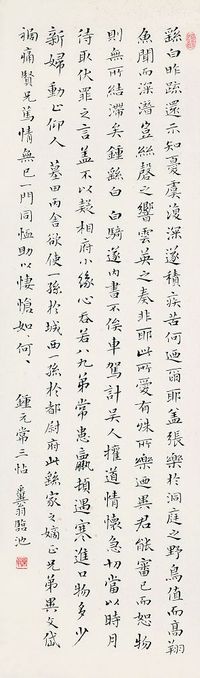 繇白昨疏還示知憂虞復深遂積疾苦何迺爾耶蓋張樂於洞庭之野鳥值而高翔
魚聞而深潛豈絲磬之響雲英之奏非耶此所愛有殊所樂迺異君能審己而恕物
則無所結滯矣鍾繇白 白騎遂內書不俟車駕計吳人權道情懷急切當以時月
待取伏罪之言蓋不以疑相府小緣心吞若八九弟常患羸頓遇寒進口物多少
新婦動止仰人 墓田丙舍欲使一孫於城西一孫於都尉府此繇家之嫡正兄弟異文岱
禍痛賢兄篤情無已一門同恤助以悽愴如何々
鍾元常三帖 糞翁臨池